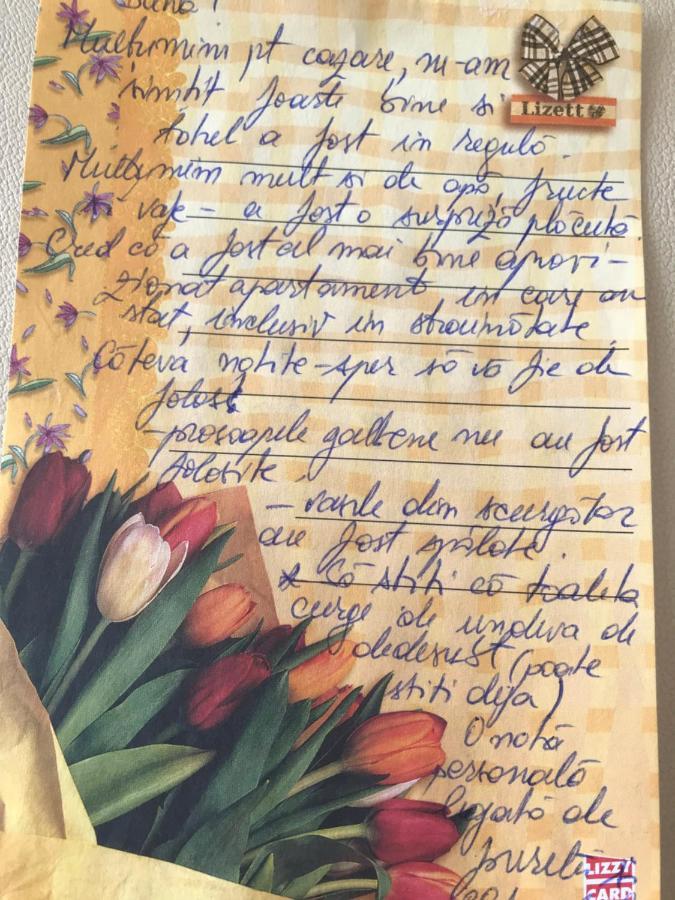 Bună!
Mulțumim pt cazare, ne-am
simțit foarte bine și
totul a fost în regulă.
Mulțumim mult și de apă, fructe
- a fost o surpriză plăcută.
Cred că a fost cel mai bine aprovi-
zionat apartament în care am
stat, inclusiv în străinătate.
Câteva notițe - sper să vă fie de
folos
- prosoapele galbene nu au fost
folosite.
- vasele din scurgător
au fost spălate.
Că știți că toaleta
curge de undeva de
dedesubt (poate
știți deja)
O notă
personală
legată de
Lizett
LIZZY
CARD